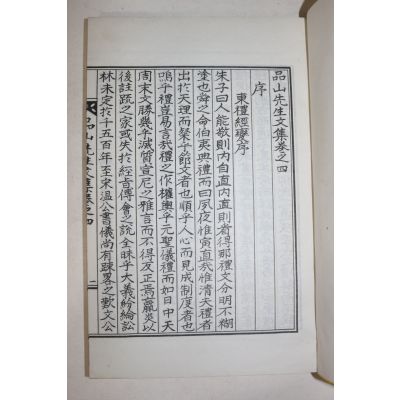 品山先生文集卷之四
序
東禮經變序
朱子曰人能敬則內自直內直則看得那禮文分明不糊
塗也舜之命伯夷典禮而曰夙夜惟寅直哉惟清夫禮者
出於天理而粲乎節文者也順乎人心而見成制度者也
嗚乎禮豈易言哉禮之作權輿乎元聖儀禮而如日中天
周末文勝幾乎滅質宣尼之雅言而不得反正焉嬴炎以
後註疏之家或失於經旨傳會之說全昧乎大義紛綸訟
林未定於千五百年至宋溫公書儀尚有疎畧之歎文公
品山先生文集卷四